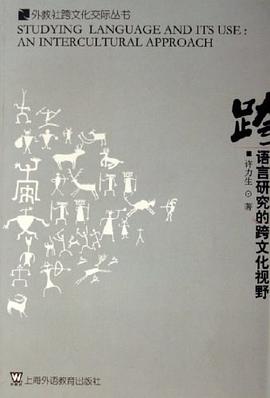 外教社跨文化交际丛书
STUDYING LANGUAGE AND ITS USE :
AN INTERCULTURAL APPROACH
跨
语言研究的跨文化视野
许力生 ⊙ 著
W
上海外语教育出版社